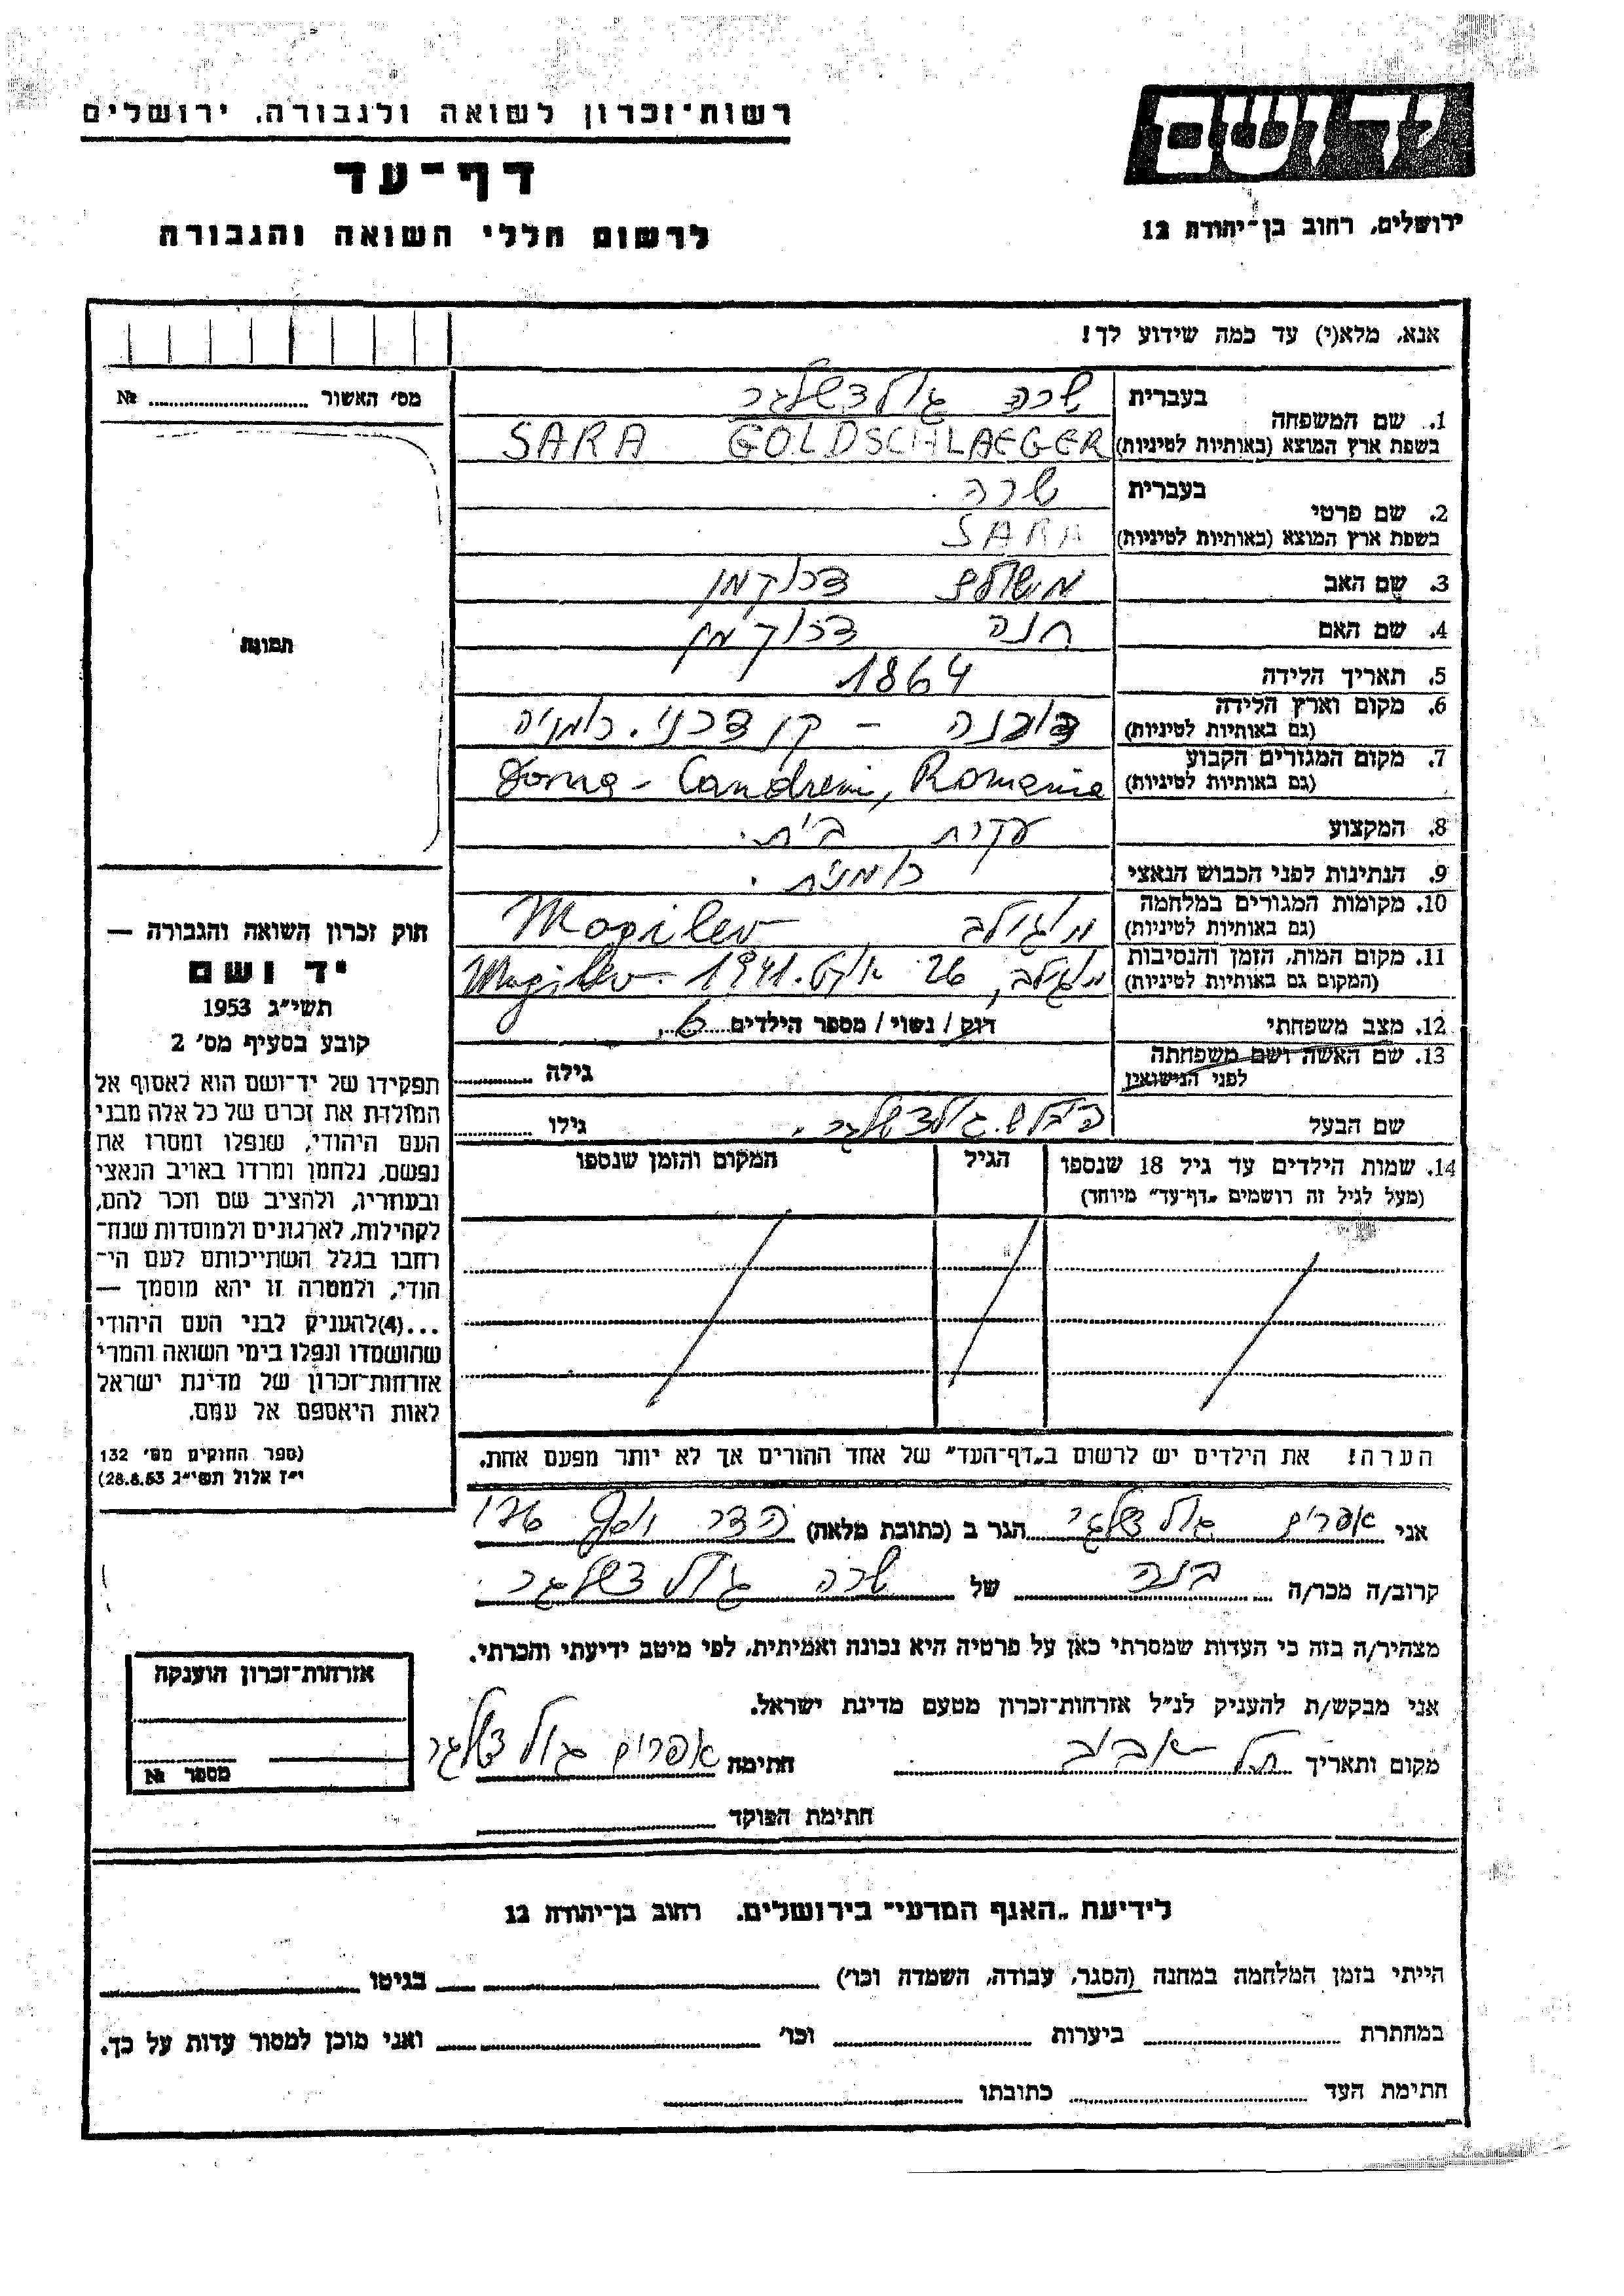 רשות־זכרון לשואה ולגבורה, ירושלים
יד ושם
דף־עד
לרשום חללי השואה והגבורה
ירושלים, רחוב בן־יהודה 12
אנא, מלא(י) עד כמה שידוע לך!
מס׳ האשור № 
1. שם המשפחה
בעברית שרה גולדשלגר
בשפת ארץ המוצא (באותיות לטיניות) SARA GOLDSCHLAEGER
2. שם פרטי
בעברית שרה.
בשפת ארץ המוצא (באותיות לטיניות) SARA
3. שם האב משולם דרוקמן
4. שם האם חנה דרוקמן
5. תאריך הלידה 1864
6. מקום וארץ הלידה
(גם באותיות לטיניות) רומניה
7. מקום המגורים הקבוע
(גם באותיות לטיניות) Dorna - Candreni, Romania
8. המקצוע עקרת בית.
9. הנתינות לפני הכבוש הנאצי רומנית.
10. מקומות המגורים במלחמה
(גם באותיות לטיניות) מוגילב Mogilev
11. מקום המות, הזמן והנסיבות
(המקום גם באותיות לטיניות) מוגילב, 26 אוקט. 1941. Mogilev
12. מצב משפחתי רווק / נשוי / מספר הילדים 6
13. שם האשה ושם משפחתה
לפני הנישואין גילה
שם הבעל גולדשלגר. גילו
14. שמות הילדים עד גיל 18 שנספו הגיל המקום והזמן שנספו
(מעל לגיל זה רושמים „דף־עד״ מיוחד)
הערה! את הילדים יש לרשום ב„דף־העד״ של אחד ההורים אך לא יותר מפעם אחת.
תמונה
חוק זכרון השואה והגבורה —
יד ושם
תשי״ג 1953
קובע בסעיף מס׳ 2
תפקידו של יד־ושם הוא לאסוף אל
המולדת את זכרם של כל אלה מבני
העם היהודי, שנפלו ומסרו את
נפשם, נלחמו ומרדו באויב הנאצי
ובעוזריו, ולהציב שם וזכר להם,
לקהילות, לארגונים ולמוסדות שנח־
רחבו בגלל השתייכותם לעם הי־
הודי, ולמטרה זו יהא מוסמך —
...(4)להעניק לבני העם היהודי
שהושמדו ונפלו בימי השואה והמרי
אזרחות־זכרון של מדינת ישראל
לאות היאספם אל עמם.
(ספר החוקים מס׳ 132
י״ז אלול תשי״ג 28.8.53)
אני אפרים גולדשלגר הגר ב (כתובת מלאה) הדר יוסף
קרוב/ה מכר/ה בנה של שרה גולדשלגר.
מצהיר/ה בזה כי העדות שמסרתי כאן על פרטיה היא נכונה ואמיתית, לפי מיטב ידיעתי והכרתי.
אני מבקש/ת להעניק לנ״ל אזרחות־זכרון מטעם מדינת ישראל.
מקום ותאריך תל אביב חתימה אפרים גולדשלגר
חתימת הפוקד
אזרחות־זכרון הוענקה
מספר №
לידיעת „האגף המדעי״ בירושלים. רחוב בן־יהודה 12
הייתי בזמן המלחמה במחנה (הסגר, עבודה, השמדה וכו׳) בגיטו
במחתרת ביערות וכו׳ ואני מוכן למסור עדות על כך.
חתימת העד כתובתו